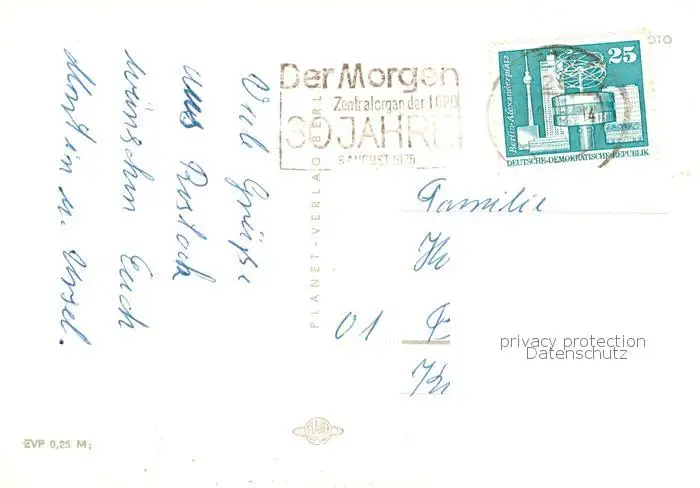 Viele Grüße
aus Rostock
wünschen Euch
u. Ursel.
Der Morgen
Zentralorgan der LDPD
30 JAHRE
3 AUGUST 1975
Berlin-Alexanderplatz
25
DEUTSCHE DEMOKRATISCHE REPUBLIK
14
OTO
PLANET-VERLAG BERL
Familie
01
privacy protection
Datenschutz
PLANET
EVP 0,25 M;